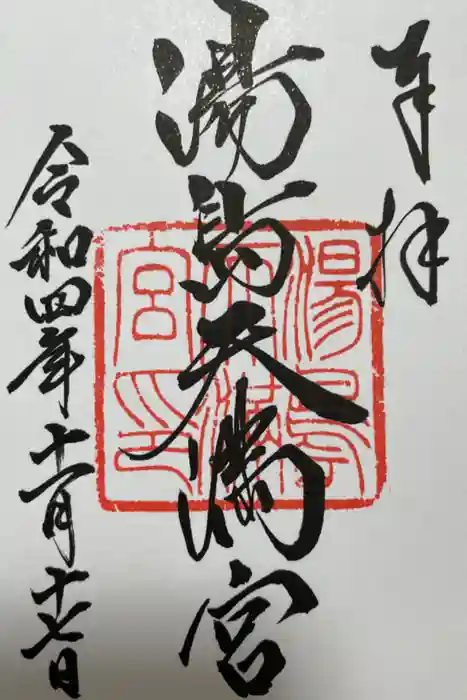 奉拝
湯島天満宮
湯島天満宮印
令和四年十一月十七日